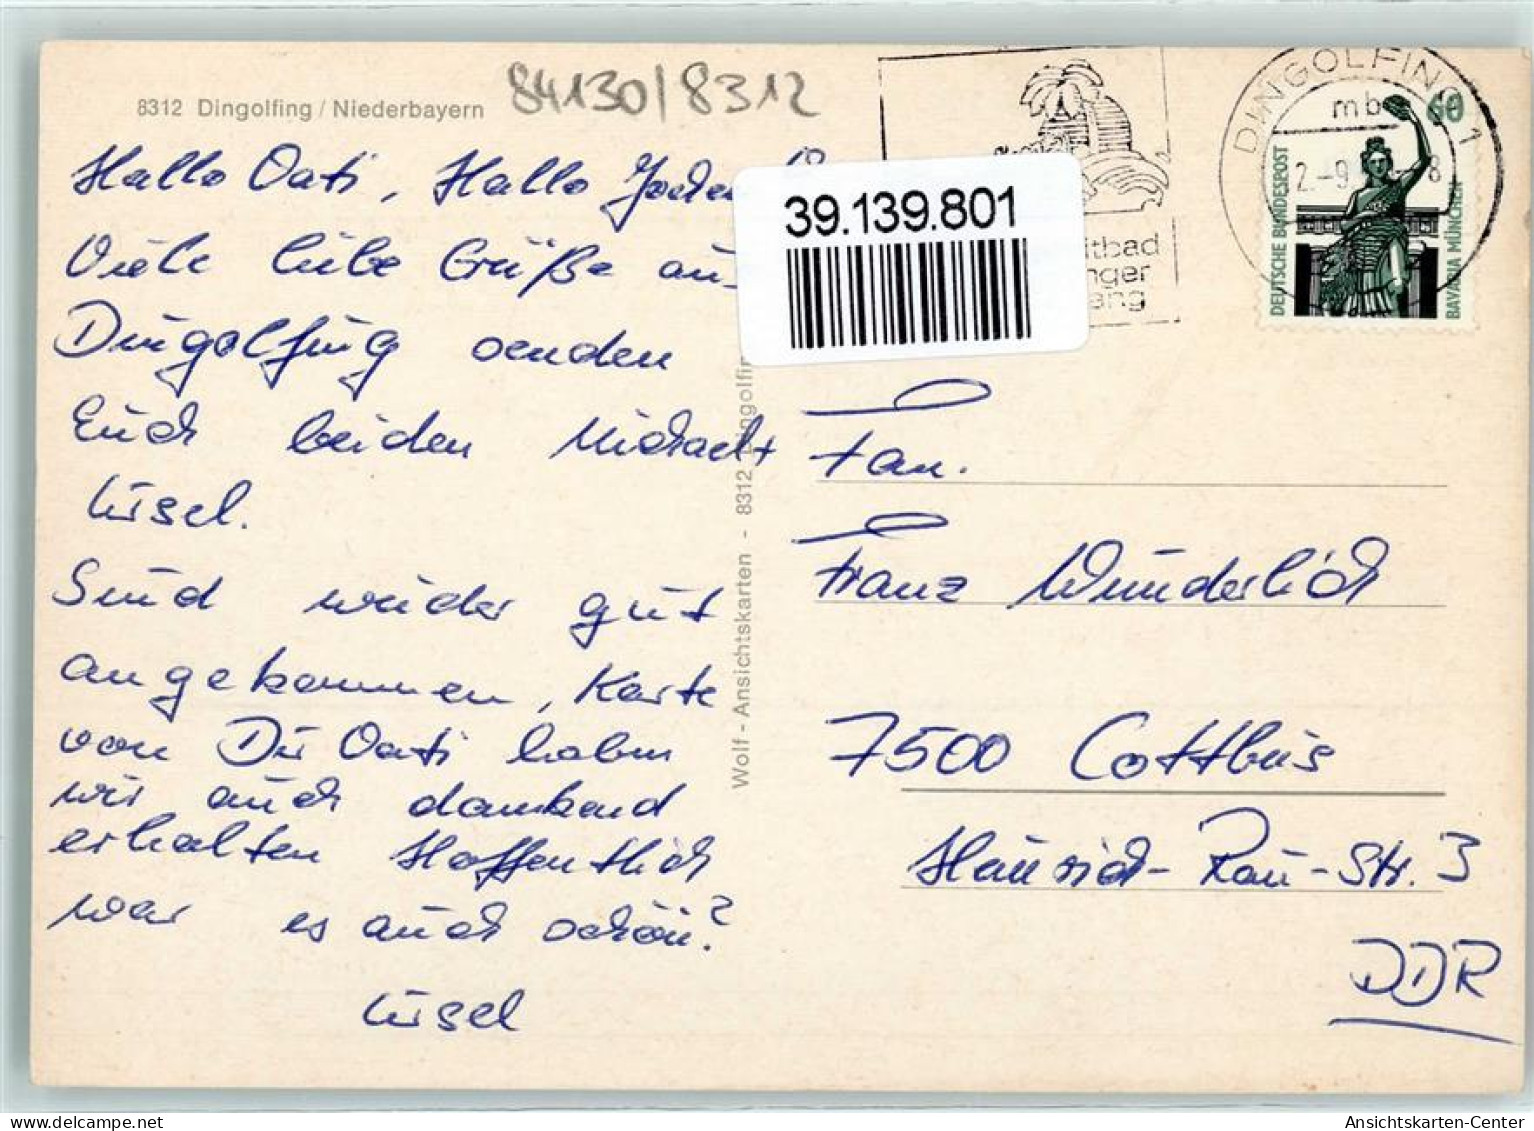 8312 Dingolfing / Niederbayern
84130/8312
Hallo Vati, Hallo
Viele liebe Grüße aus
Dingolfing senden
Euch beiden Michael +
Ursel.
Sind wieder gut
angekommen, Karte
von Dir Vati haben
wir auch dankend
erhalten Hoffentlich
war es auch schön?
Ursel
Wolf - Ansichtskarten - 8312 Dingolfin
39.139.801
DINGOLFING 1
mb
60
DEUTSCHE BUNDESPOST
BAVARIA MÜNCHEN
Fam.
Franz Wunderlich
7500 Cottbus
Heinrich-Rau-Str. 3
DDR
Ansichtskarten-Center